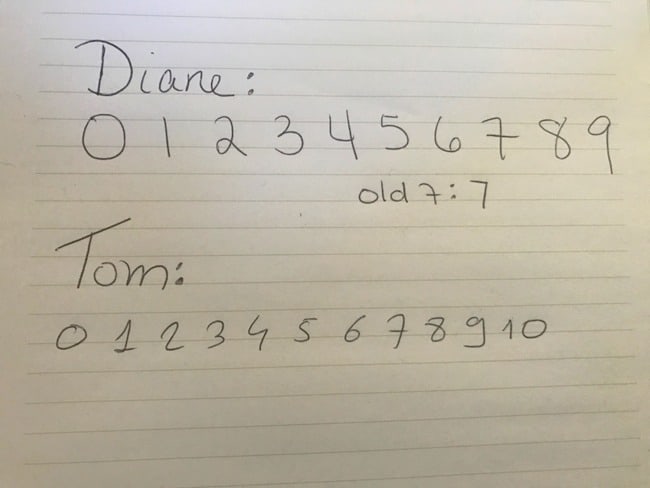 Diane:
0 1 2 3 4 5 6 7 8 9
old 7: 7
Tom:
0 1 2 3 4 5 6 7 8 9 10